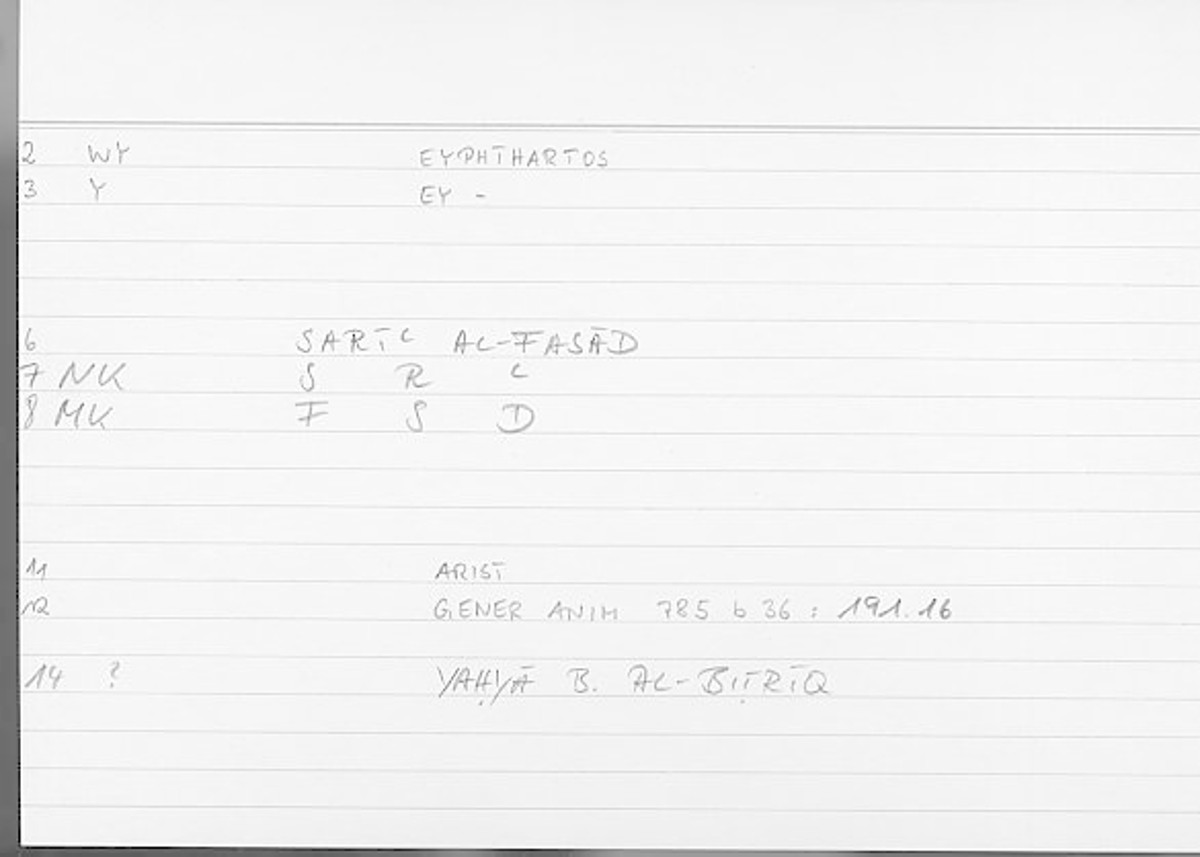 2 WY EYPHTHARTOS
3 Y EY -
6 SARĪʿ AL-FASĀD
7 NK S R ʿ
8 MK F S D
11 ARIST
12 GENER ANIM 785 b 36 : 191.16
14 ? YAḤYĀ B. AL-BIṬRĪQ